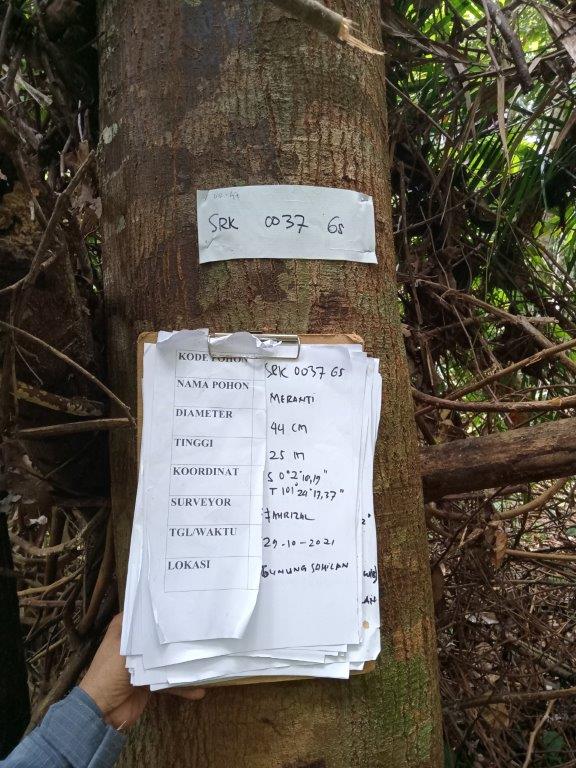 SRK 0037 GS
KODE POHON SRK 0037 GS
NAMA POHON MERANTI
DIAMETER 44 CM
TINGGI 25 M
KOORDINAT S 0°2'10,19"
T 101°24'17,37"
SURVEYOR FAHRIZAL
TGL/WAKTU 29-10-2021
LOKASI GUNUNG SAHILAN